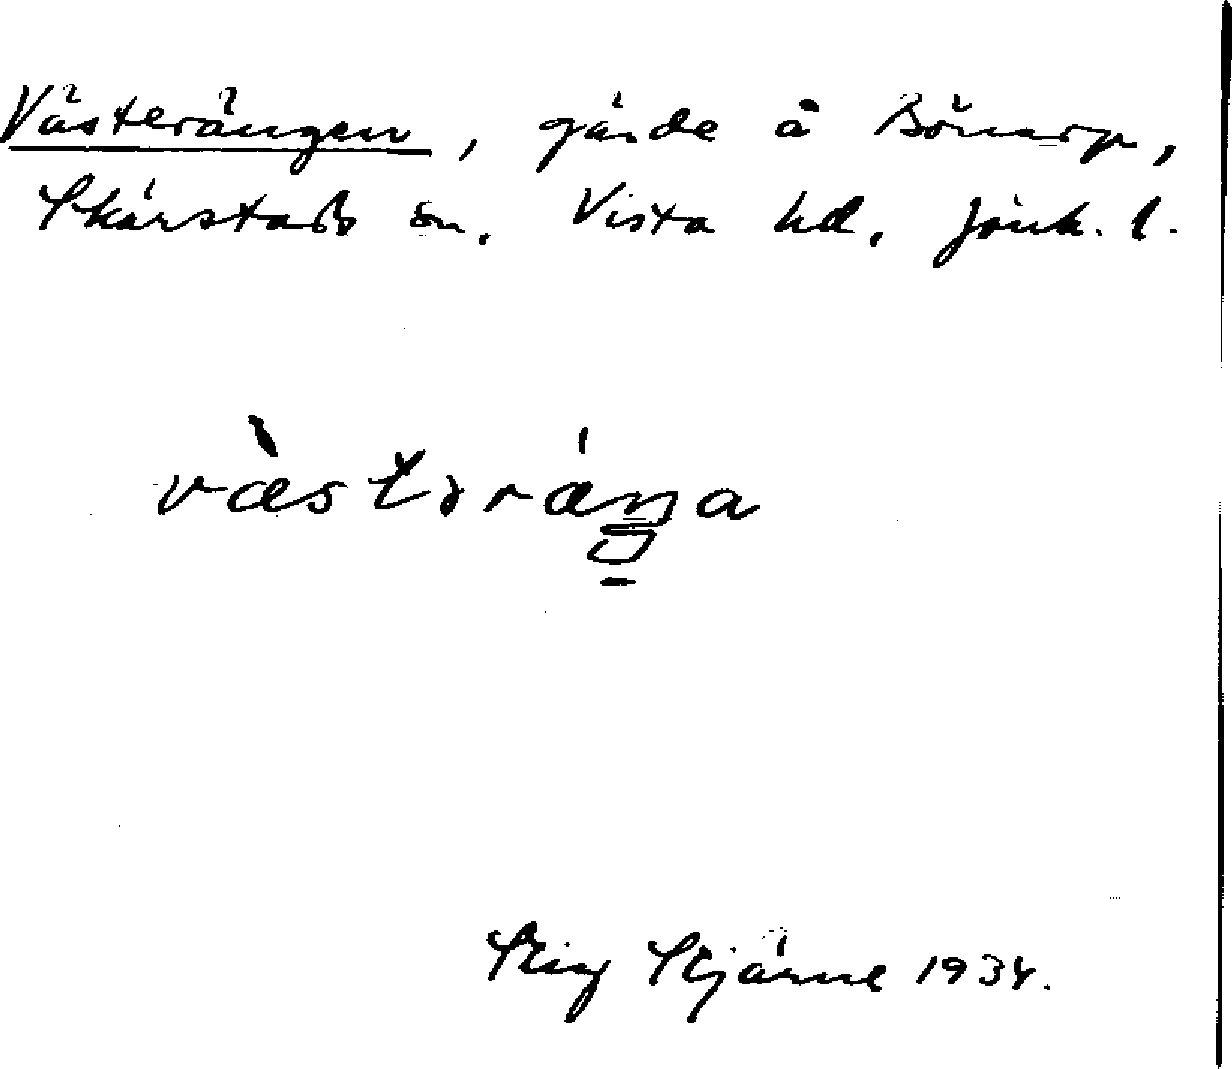 Västerängen, gärde å Bönarp,
Skärstads sn. Vista hd. Jönk. l.
væ̀stərǽŋa
Stig Stjärne 1934.